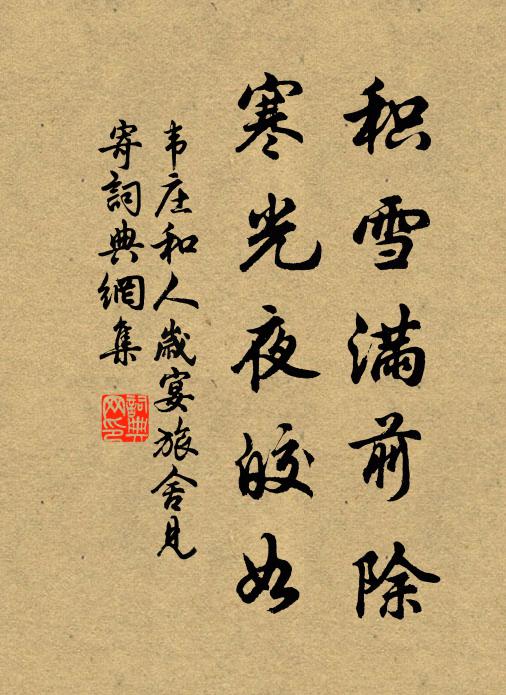 积雪满前除
寒光夜皎如
韦庄和人岁宴旅舍见
寄詞典網集
詞典网印